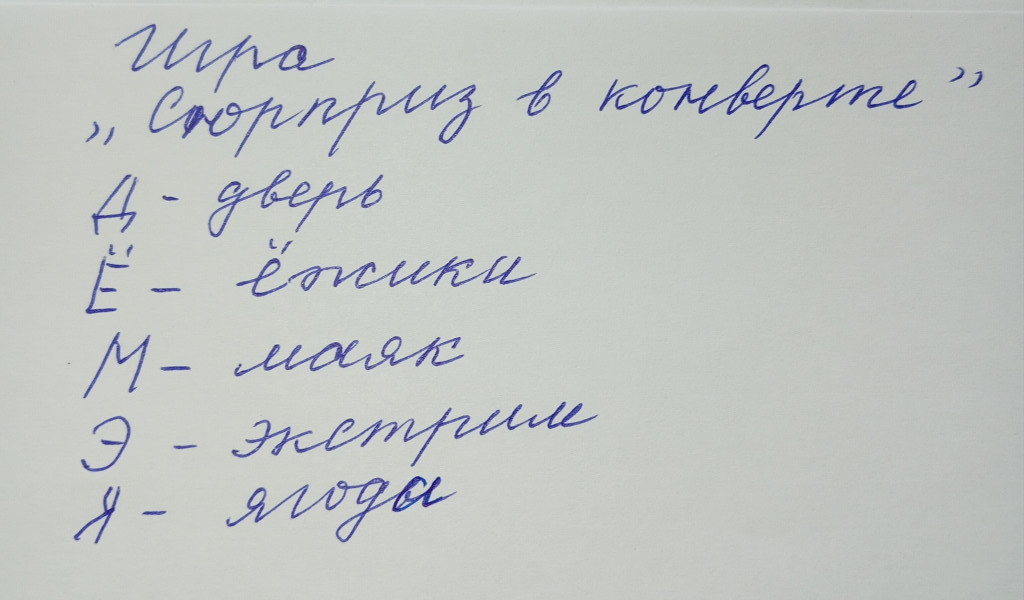 Игра
„Сюрприз в конверте”
Д - дверь
Ё - ёжики
М - маяк
Э - экстрим
Я - ягода